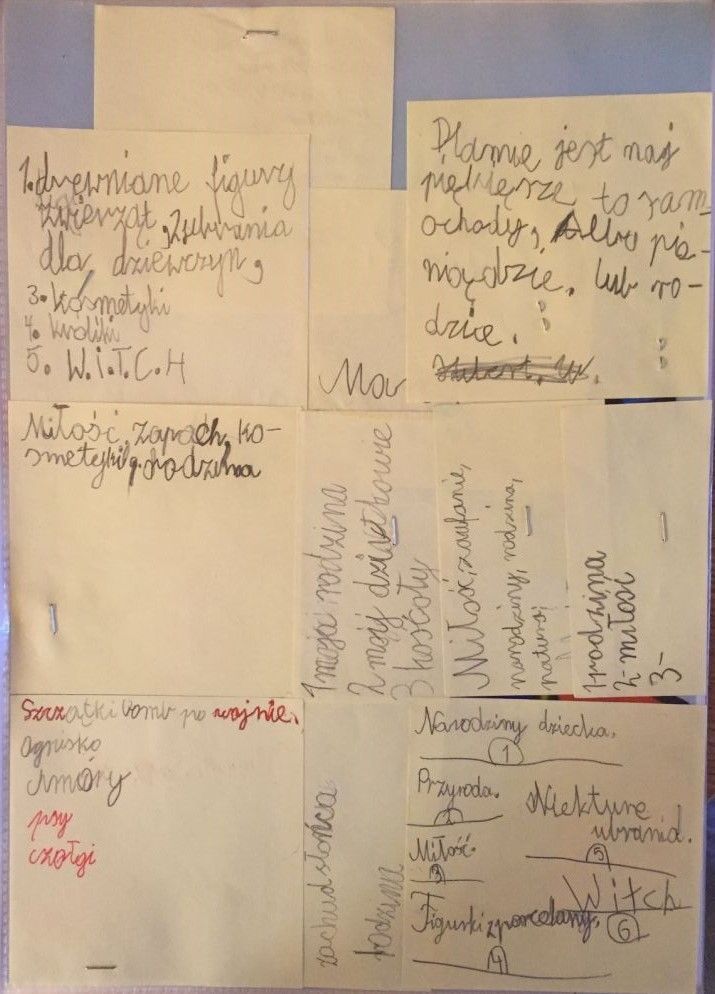 1. drewniane figury
zwierząt, 2 ubrania
dla dziewczyn,
3. kosmetyki
4. króliki
5. W.i.T.C.H
Dlamię jest naj
pięknięrze to sam-
ochody, Albo pie-
niądzie. lub ro-
dzice.
Hubert. W.
Ma
Miłość, zapach, ko-
smetyki, rodzina
1 moja rodzina
2 moji dziatkowie
3 kośćoły
Miłość, zaufanie,
narodziny, rodzina,
natura,
1 rodzina
2- miłość
3-
Szczątki bomb po wojnie.
Ognisko
chmóry
psy
czołgi
zachud słońca
rodzina
Narodziny dziecka.
1
Przyroda.
2
Miłość.
3
Figurki z porcelany.
4
Niekture
ubrania.
5
Witch
6